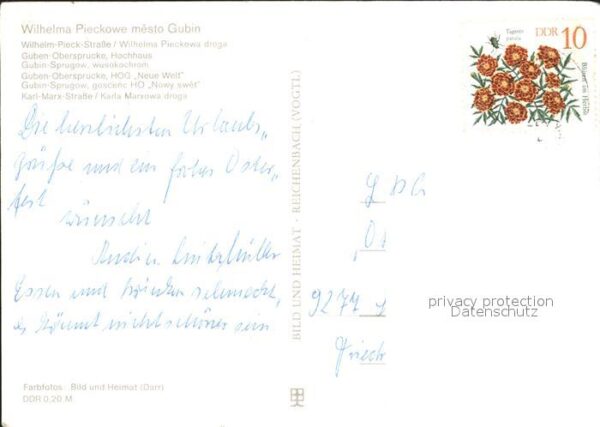 Wilhelma Pieckowe město Gubin
Wilhelm-Pieck-Straße / Wilhelma Pieckowa droga
Guben-Obersprucke, Hochhaus
Gubin-Sprugow, wusokochrom
Guben-Obersprucke, HOG „Neue Welt"
Gubin-Sprugow, gosćeńc HO „Nowy swět"
Karl-Marx-Straße / Karla Marxowa droga
Die herzlichsten Urlaubs„
grüße und ein frohes Oster„
fest
wünscht
Essen und trinken schmeckt,
es könnt nicht schöner sein
Farbfotos Bild und Heimat (Darr)
DDR 0,20 M
BILD UND HEIMAT · REICHENBACH (VOGTL)
Tagetes
patula
DDR 10
Blumen im Herbst
9274
Friedr
privacy protection
Datenschutz